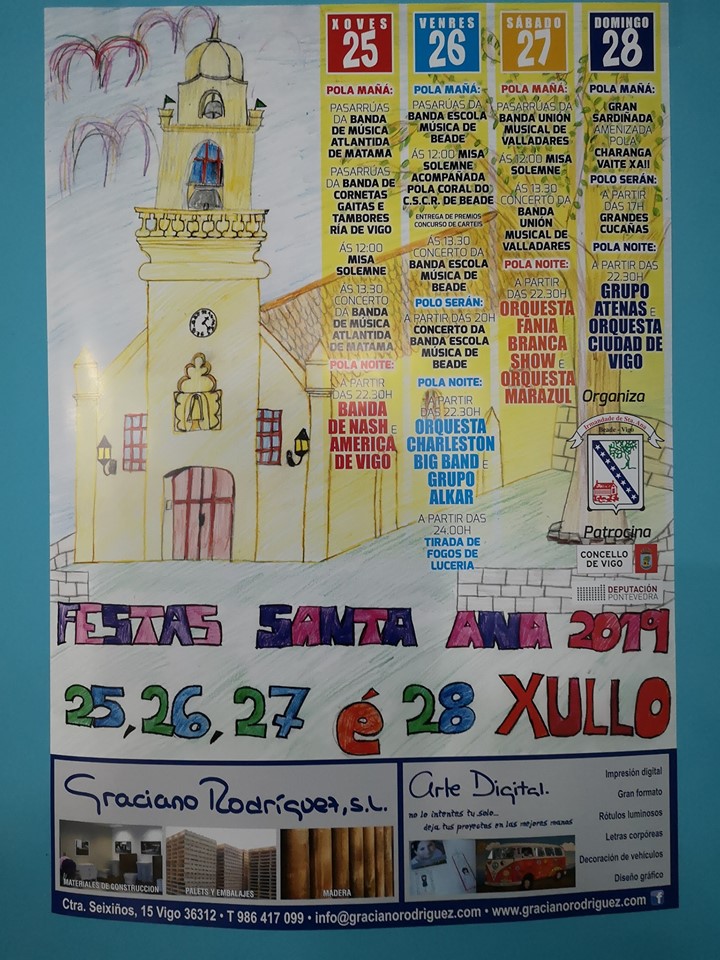 XOVES
25
POLA MAÑÁ:
PASARRÚAS
DA BANDA
DE MÚSICA
ATLANTIDA
DE MATAMA
PASARRÚAS
DA BANDA DE
CORNETAS
GAITAS E
TAMBORES
RÍA DE VIGO
ÁS 12:00
MISA
SOLEMNE
ÁS 13.30
CONCERTO
DA BANDA
DE MÚSICA
ATLANTIDA
DE MATAMA
POLA NOITE:
A PARTIR
DAS 22.30H
BANDA
DE NASH E
AMERICA
DE VIGO
VENRES
26
POLA MAÑÁ:
PASARÚAS DA
BANDA ESCOLA
MÚSICA DE
BEADE
ÁS 12:00 MISA
SOLEMNE
ACOMPAÑADA
POLA CORAL DO
C.S.C.R. DE BEADE
ENTREGA DE PREMIOS
CONCURSO DE CARTEIS
ÁS 13.30
CONCERTO DA
BANDA ESCOLA
MÚSICA DE
BEADE
POLO SERÁN:
A PARTIR DAS 20H
CONCERTO DA
BANDA ESCOLA
MÚSICA DE
BEADE
POLA NOITE:
A PARTIR
DAS 22.30H
ORQUESTA
CHARLESTON
BIG BAND E
GRUPO
ALKAR
A PARTIR DAS
24.00H
TIRADA DE
FOGOS DE
LUCERIA
SÁBADO
27
POLA MAÑÁ:
PASARRÚAS DA
BANDA UNIÓN
MUSICAL DE
VALLADARES
ÁS 12:00 MISA
SOLEMNE
ÁS 13.30
CONCERTO DA
BANDA
UNIÓN
MUSICAL DE
VALLADARES
POLA NOITE:
A PARTIR
DAS 22.30H
ORQUESTA
FANIA
BRANCA
SHOW E
ORQUESTA
MARAZUL
DOMINGO
28
POLA MAÑÁ:
GRAN
SARDIÑADA
AMENIZADA
POLA
CHARANGA
VAITE XA!!
POLO SERÁN:
A PARTIR
DAS 17H
GRANDES
CUCAÑAS
POLA NOITE:
A PARTIR DAS
22.30H
GRUPO
ATENAS E
ORQUESTA
CIUDAD DE
VIGO
Organiza
Irmandade de Sta. Ana
Beade - Vigo
Patrocina
CONCELLO
DE VIGO
DEPUTACIÓN
PONTEVEDRA
FESTAS SANTA ANA 2019
25, 26, 27 é 28 XULLO
Graciano Rodríguez, s.L.
MATERIALES DE CONSTRUCCION
PALETS Y EMBALAJES
MADERA
Arte Digital.
no lo intentes tu solo...
deja tus proyectos en las mejores manos
Impresión digital
Gran formato
Rótulos luminosos
Letras corpóreas
Decoración de vehículos
Diseño gráfico
Ctra. Seixiños, 15 Vigo 36312 • T 986 417 099 • info@gracianorodriguez.com • www.gracianorodriguez.com